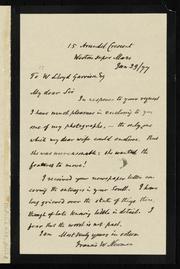 15 Arundel Crescent
Weston super Mare
Jan 29/77
To W Lloyd Garrison Esq
My dear Sir
In response to your request
I have much pleasure in enclosing to you
one of my photographs, — the only one
which my dear wife could endure. But
she was unreasonable: she wanted the
features to move!
I received your newspaper letter con-
cerning the outrages in your South. I have
long grieved over the state of things there
though of late knowing little in detail. I
fear that the worst is not past.
I am Most truly yours in esteem
Francis W. Newman